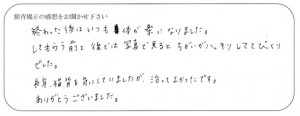 猫背矯正の感想をお聞かせ下さい
終わった後はいつも体が楽になりました。
してもらう前と後では写真で見るとちがいがハッキリしててびっくり
でした。
自身、猫背を気にしていましたが、治ってよかったです。
ありがとうございました。